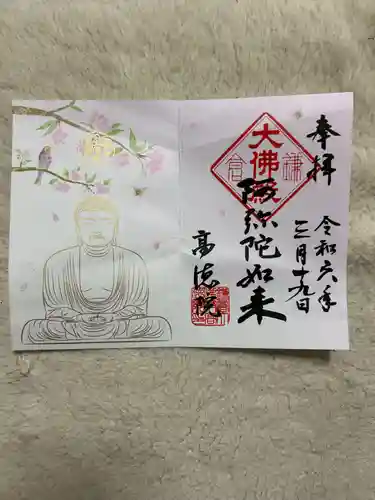 奉拝
令和六年
三月十九日
鎌倉
大佛殿
阿弥陀如来
高徳院